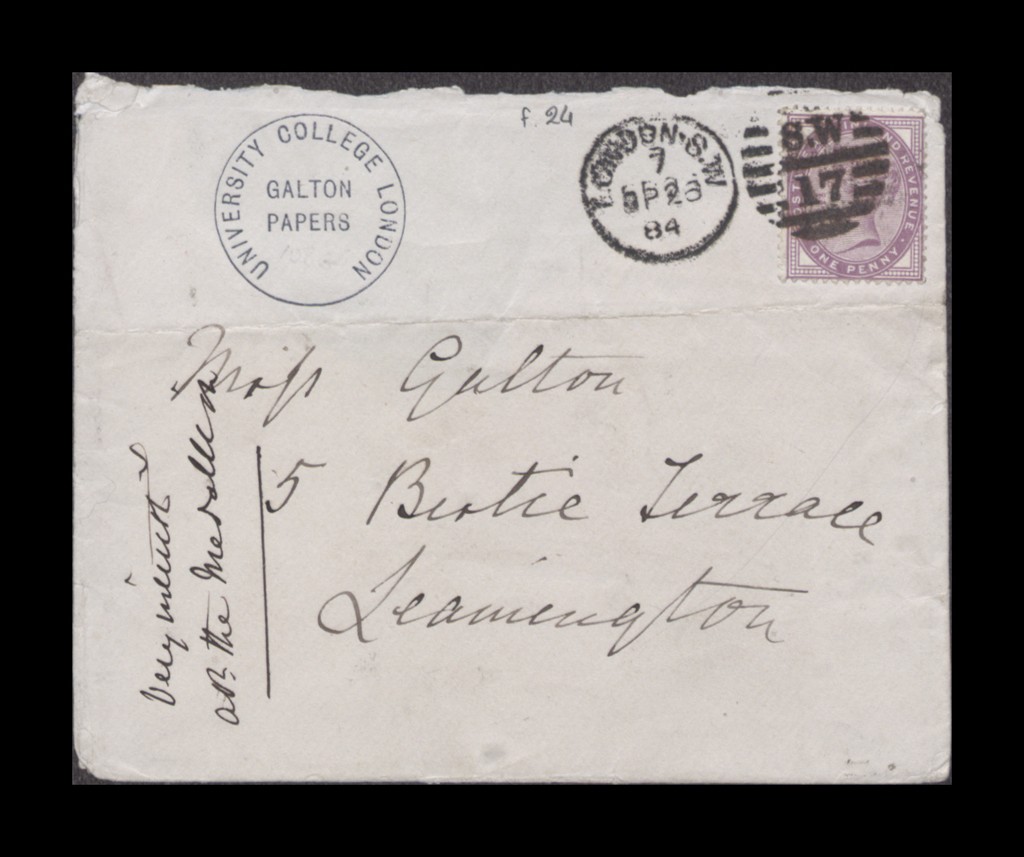 UNIVERSITY COLLEGE LONDON
GALTON
PAPERS
f. 24
LONDON·S.W
7
SP 23
84
S.W
17
REVENUE
ONE PENNY
Miss Galton
5 Bertie Terrace
Leamington
Very minute
abt. the Medallion